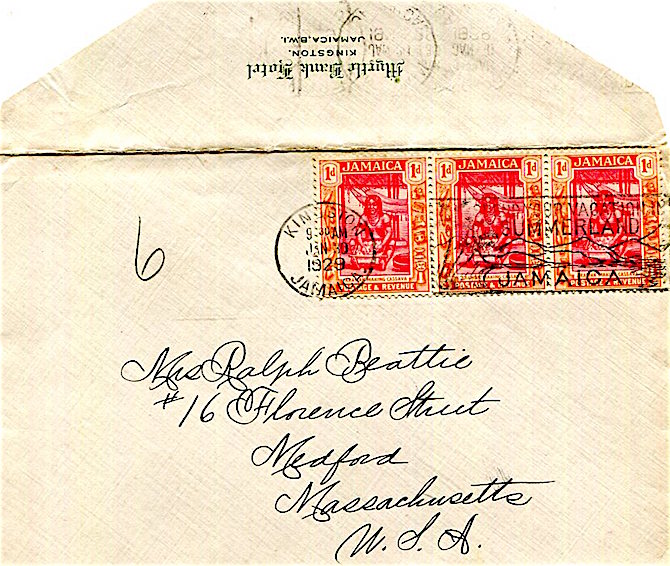 Myrtle Bank Hotel
KINGSTON.
JAMAICA, B.W.I.
JAMAICA JAMAICA JAMAICA
1d 1d 1d 1d 1d 1d
KINGSTON
AM
JAN 30
1929
JAMAICA
VACATION
SUMMERLAND
JAMAICA
CASSAVA
& REVENUE
6
Mrs Ralph Beattie
#16 Florence Street
Medford
Massachusetts
U. S. A.